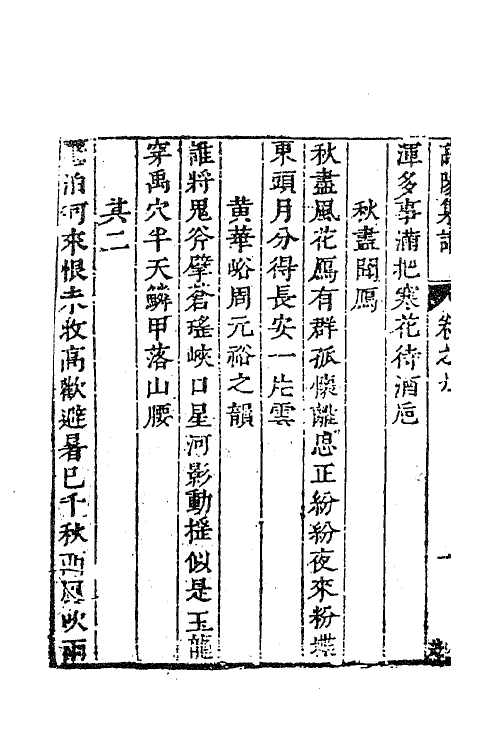 卷之九
渾多事滿把寒花待酒卮
秋盡聞鴈
秋盡風花鴈有群孤懷離思正紛紛夜來粉堞
東頭月分得長安一片雲
黃華峪周元裕之韻
誰將鬼斧擘蒼瑤峽口星河影動搖似是玉龍
穿禹穴半天鱗甲落山腰
其二
泊何來恨未收高歡避暑已千秋西風吹雨